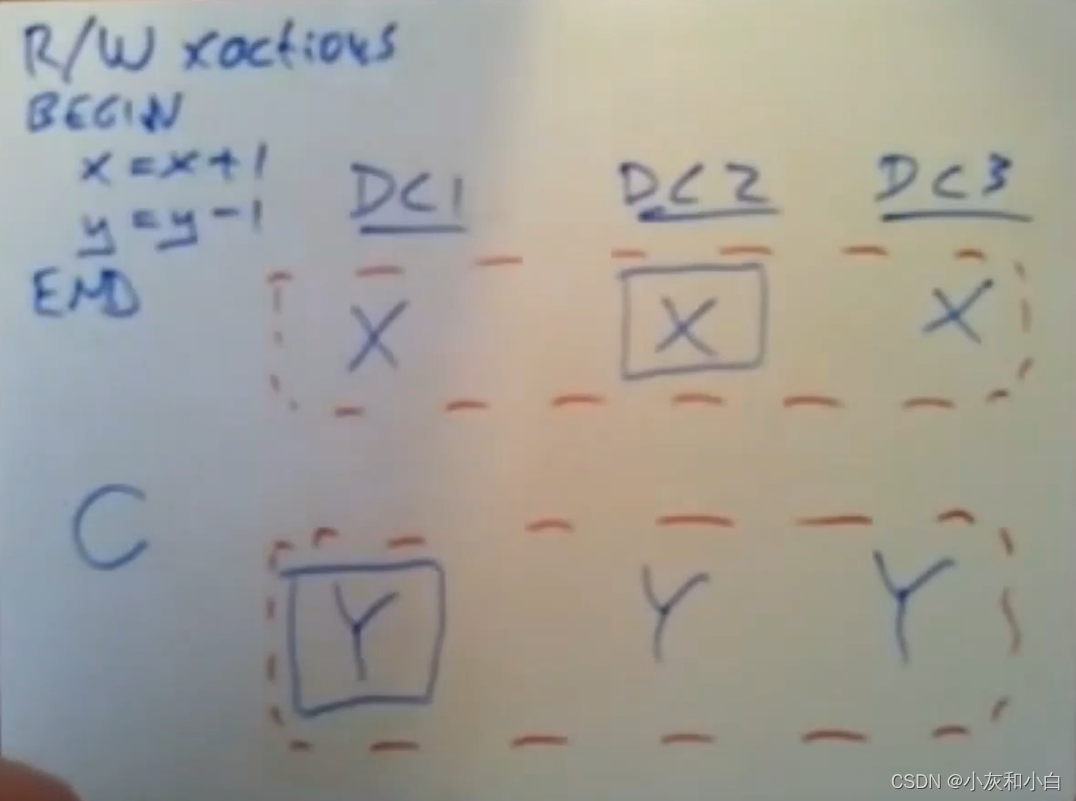 R/W xactions
BEGIN
x = x + 1
y = y - 1
END
DC1 DC2 DC3
X X X
C
Y Y Y
CSDN @小灰和小白